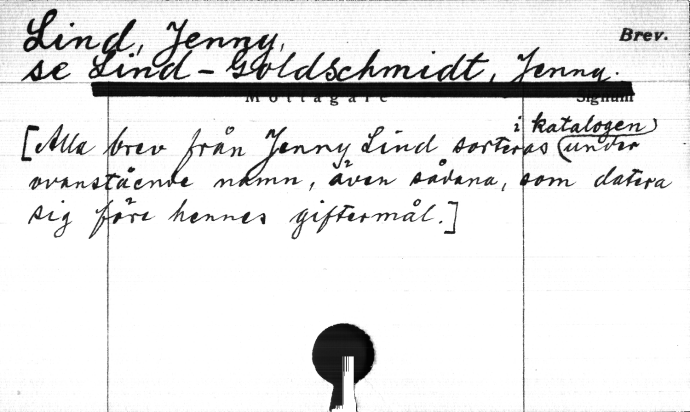 Lind, Jenny,
Brev.
se Lind-Goldschmidt, Jenny.
Mottagare
Signum
[Alla brev från Jenny Lind sorteras i katalogen (under
ovanstående namn, även sådana, som datera
sig före hennes giftermål.]